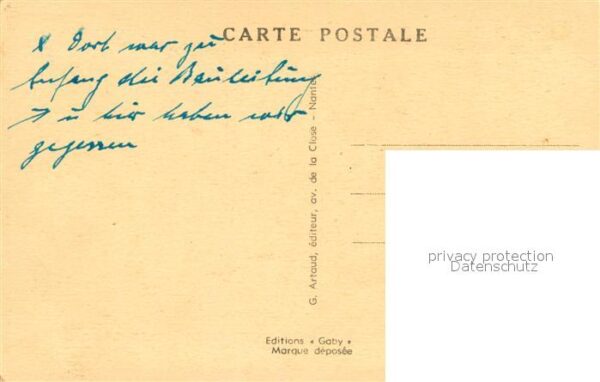 CARTE POSTALE
x Dort war zu
Anfang die Bauleitung
→ u hier haben wir
gegessen
G. Artaud, éditeur, av. de la Close - Nantes
Editions « Gaby »
Marque déposée
privacy protection
Datenschutz